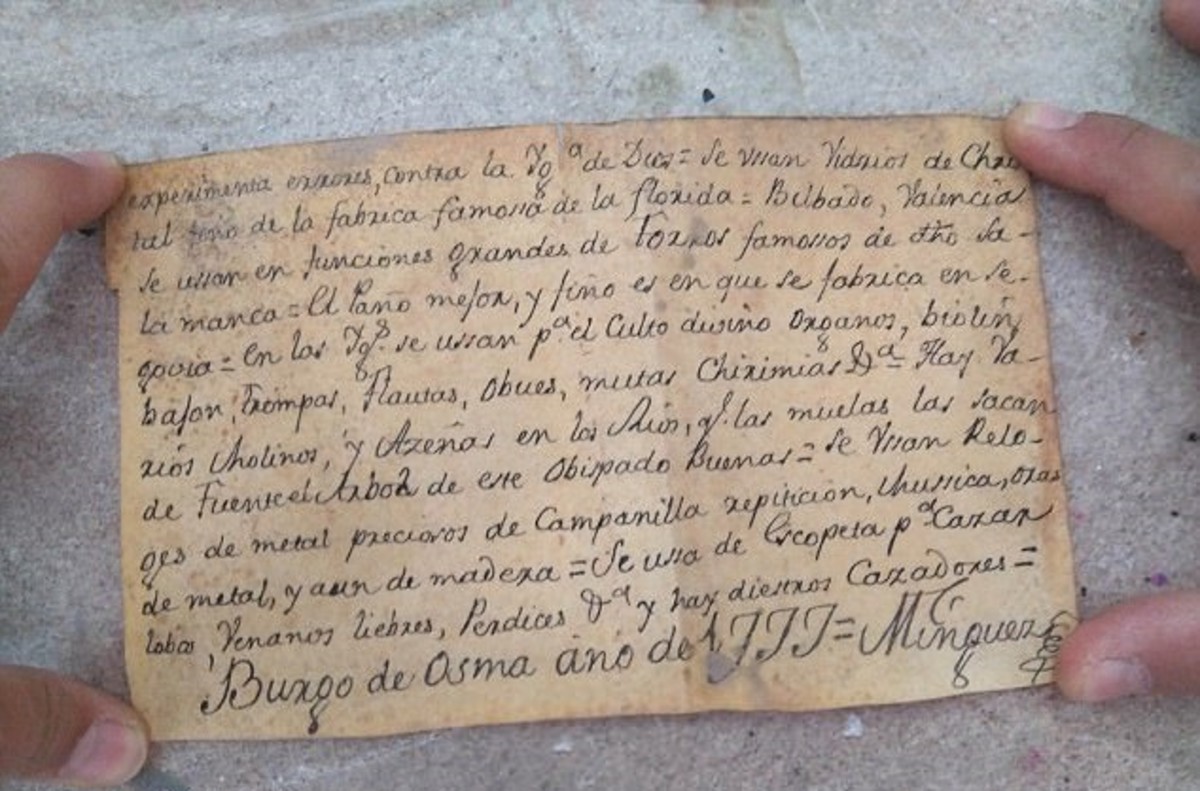 experimenta errores, contra la Ygª de Dios = Se vssan Vidrios de Chris
tal fino de la fabrica famossa de la florida = Bilbado, Valencia
se ussan en funciones grandes de torros famossos de dho Sa-
lamanca = El Paño mejor, y fino es en que se fabrica en Se-
govia = en las Ygs. se ussan pª el Culto divino Organos, biolin,
bajon, trompas, Flautas, Obues, mutas Chirimias &ª = Hay Va-
rios Molinos, y Azeñas en los Rios, q. las muelas las sacan
de Fuentcel Arbol de este Obispado Buenas = Se Vssan Relo-
ges de metal preciosos de Campanilla repiticion, Mussica, oras
de metal, y aun de madera = Se ussa de Escopeta pª Cazar
lobos, Venanos liebres, Perdices &ª y hay diestros Cazadores =
Burgo de Osma año de 1777 = Minguez